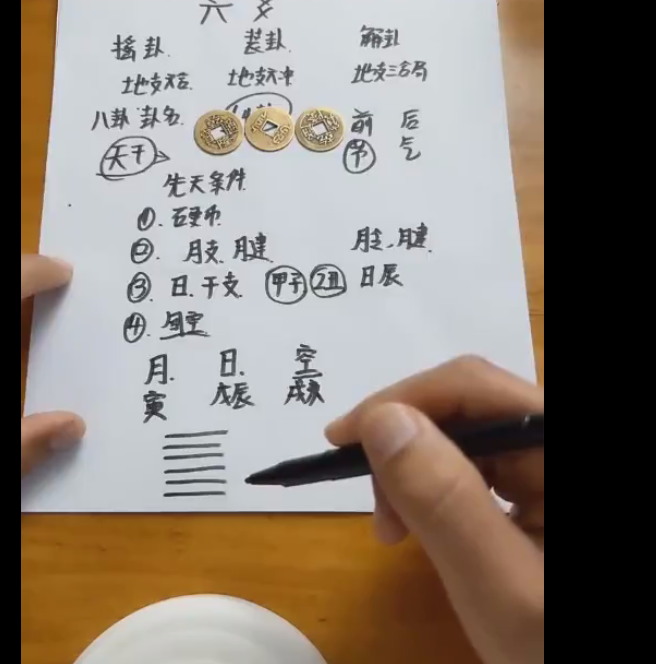 六 爻
摇卦. 装卦. 解卦
地支六合. 地支六冲 地支三合局
八卦 卦名. 前 后
天干 节 气
先天条件
①. 硬币
②. 月支. 月建 月圭. 月建
③. 日. 干支. 甲子 乙丑 日辰
④. 旬空
月. 日. 空
寅 戊辰 戌亥